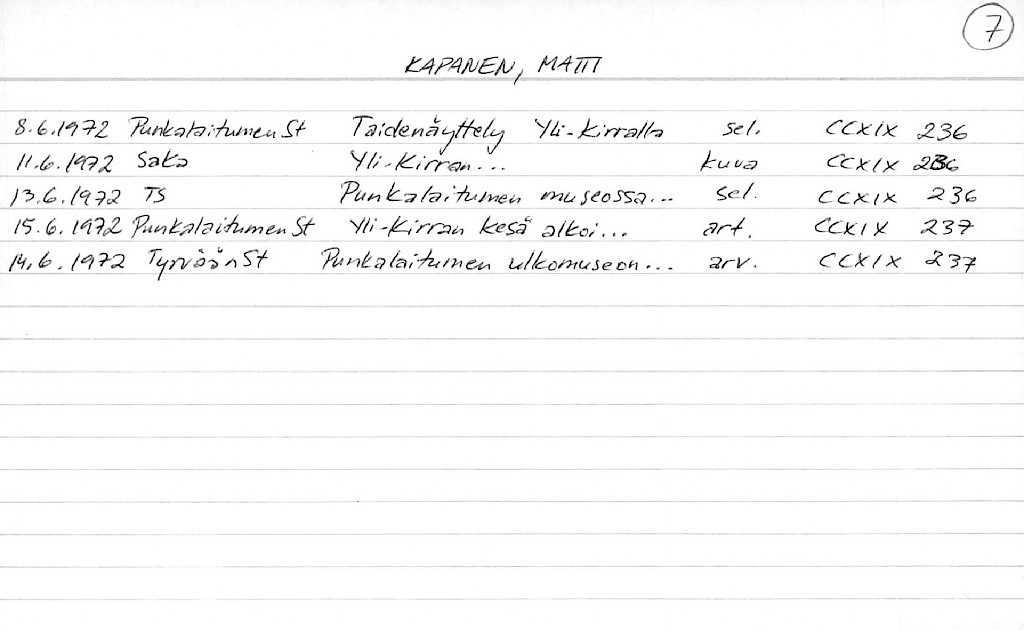 7
KAPANEN, MATTI
8.6.1972 Punkalaitumen St Taidenäyttely Yli-Kirralla sel. CCXIX 236
11.6.1972 SaKa Yli-Kirran... kuva CCXIX 236
13.6.1972 TS Punkalaitumen museossa... sel. CCXIX 236
15.6.1972 Punkalaitumen St Yli-Kirran kesä alkoi... art. CCXIX 237
14.6.1972 Tyrvään St Punkalaitumen ulkomuseon... arv. CCXIX 237